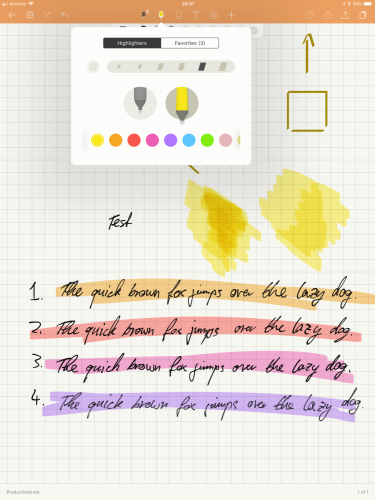 docomo 20:51
Highlighters Favorites (3)
Test
1. The quick brown fox jumps over the lazy dog.
2. The quick brown fox jumps over the lazy dog.
3. The quick brown fox jumps over the lazy dog.
4. The quick brown fox jumps over the lazy dog.
Productived.net 1 of 1